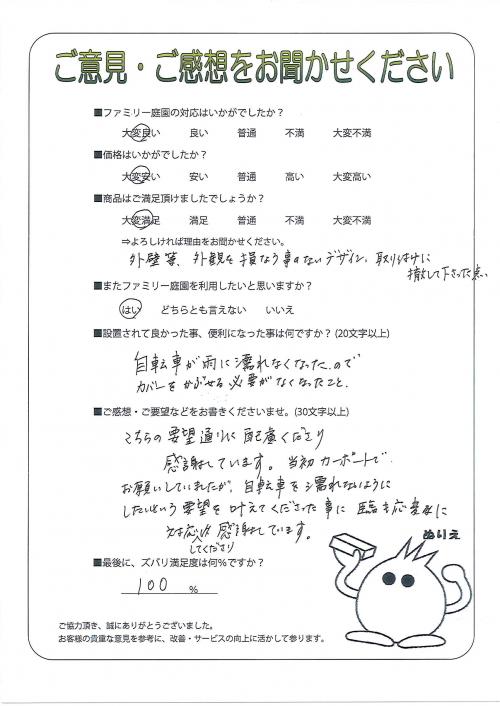 ご意見・ご感想をお聞かせください
■ファミリー庭園の対応はいかがでしたか？
大変良い 良い 普通 不満 大変不満
■価格はいかがでしたか？
大変安い 安い 普通 高い 大変高い
■商品はご満足頂けましたでしょうか？
大変満足 満足 普通 不満 大変不満
⇒よろしければ理由をお聞かせください。
外壁等、外観を損なう事のないデザイン、取り付けに
徹して下さった点、
■またファミリー庭園を利用したいと思いますか？
はい どちらとも言えない いいえ
■設置されて良かった事、便利になった事は何ですか？(20文字以上)
自転車が雨に濡れなくなったので
カバーをかぶせる必要がなくなったこと。
■ご感想・ご要望などをお書きくださいませ。(30文字以上)
こちらの要望通りに配慮くださり
感謝しています。当初カーポートで
お願いしていましたが、自転車を濡れないように
したいという要望を叶えてくださった事に 臨き応変に
対応 感謝しています。
してくださり
ぬりえ
■最後に、ズバリ満足度は何％ですか？
100 %
ご協力頂き、誠にありがとうございました。
お客様の貴重な意見を参考に、改善・サービスの向上に活かして参ります。